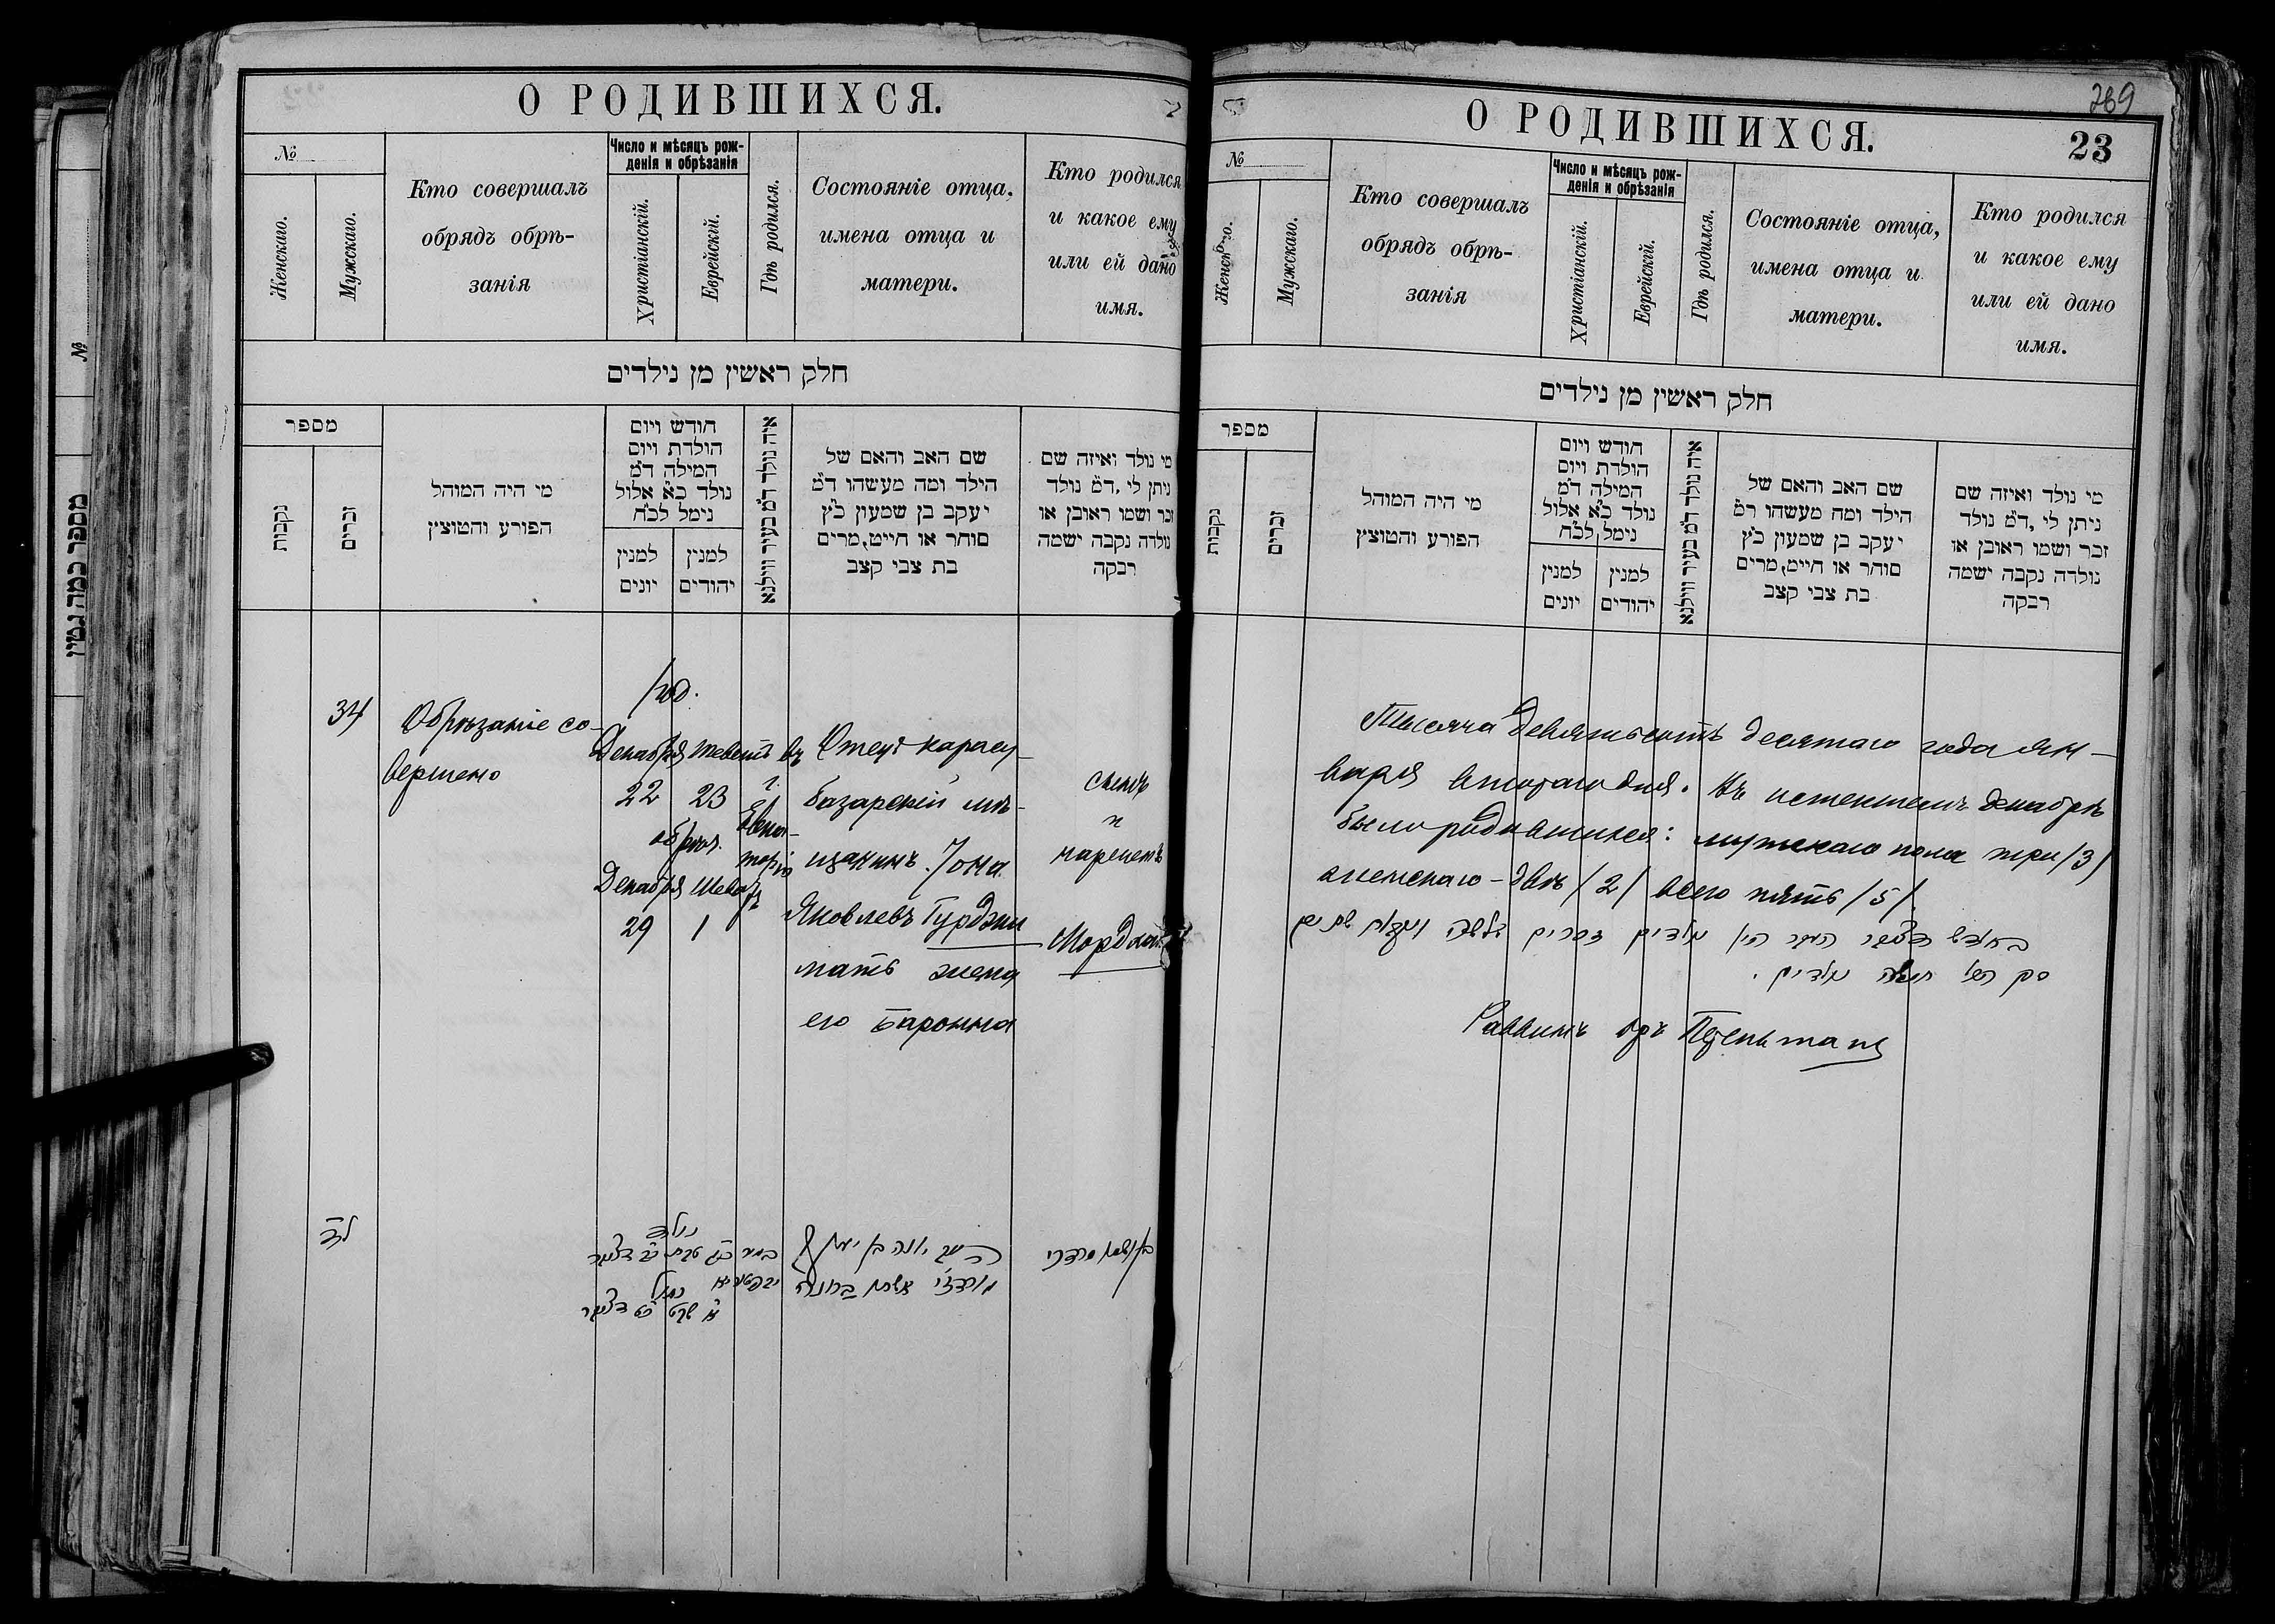 О РОДИВШИХСЯ.
№
Женскаго.
Мужскаго.
Кто совершалъ
обрядъ обрѣ-
занія
Число и мѣсяцъ рож-
денія и обрѣзанія
Христіанскій.
Еврейскій.
Гдѣ родился.
Состояніе отца,
имена отца и
матери.
Кто родился
и какое ему
или ей дано
имя.
חלק ראשין מן נילדים
מספר
נקבות
זכרים
מי היה המוהל
הפורע והטוצץ
חודש ויום
הולדת ויום
המילה ד״מ
נולד כ״א אלול
נימל לכ״ח
למנין
יונים
למנין
יהודים
איה נולד ד״מ בעיר ווילנא
שם האב והאם של
הילד ומה מעשהו ד״מ
יעקב בן שמעון כ״ץ
סוחר או חייט, מרים
בת צבי קצב
מי נולד ואיזה שם
ניתן לי, ד״מ נולד
זכר ושמו ראובן או
נולדה נקבה ישמה
רבקה
34
Обрѣзаніе со-
вершено
/род.
Декабря Теветъ
22 23
обрѣз.
Декабря Шеватъ
29 1
въ
г.
Евпа-
торіи
Отецъ карасу-
базарскій мѣ-
щанинъ Іона
Яковлевъ Гурджи
мать жена
его Баронна
сынъ
и
нареченъ
Мордхай
לד
נולד
כ״ג טבת כ״ב דצמבר
נמול
א׳ שבט כ״ט דצמבר
בעיר
יבפטריא
יונה בן יעקב
גורדזי אשתו ברונה
בן ושמו מרדכי
О РОДИВШИХСЯ.
269
23
№
Женскаго.
Мужскаго.
Кто совершалъ
обрядъ обрѣ-
занія
Число и мѣсяцъ рож-
денія и обрѣзанія
Христіанскій.
Еврейскій.
Гдѣ родился.
Состояніе отца,
имена отца и
матери.
Кто родился
и какое ему
или ей дано
имя.
חלק ראשין מן נילדים
מספר
נקבות
זכרים
מי היה המוהל
הפורע והטוצץ
חודש ויום
הולדת ויום
המילה ד״מ
נולד כ״א אלול
נימל לכ״ח
למנין
יונים
למנין
יהודים
איה נולד ד״מ בעיר ווילנא
שם האב והאם של
הילד ומה מעשהו ד״מ
יעקב בן שמעון כ״ץ
סוחר או חייט, מרים
בת צבי קצב
מי נולד ואיזה שם
ניתן לי, ד״מ נולד
זכר ושמו ראובן או
נולדה נקבה ישמה
רבקה
Тысяча девятьсотъ десятаго года ян-
варя втораго дня. Въ истекшемъ декабрѣ
было родившихся: мужскаго пола три /3/
женскаго - двѣ /2/ всего пять /5/.
בחודש דצמבר העבר היו נולדים זכרים שלשה ונקבות שתים
סך הכל חמשה נולדים.
Раввинъ